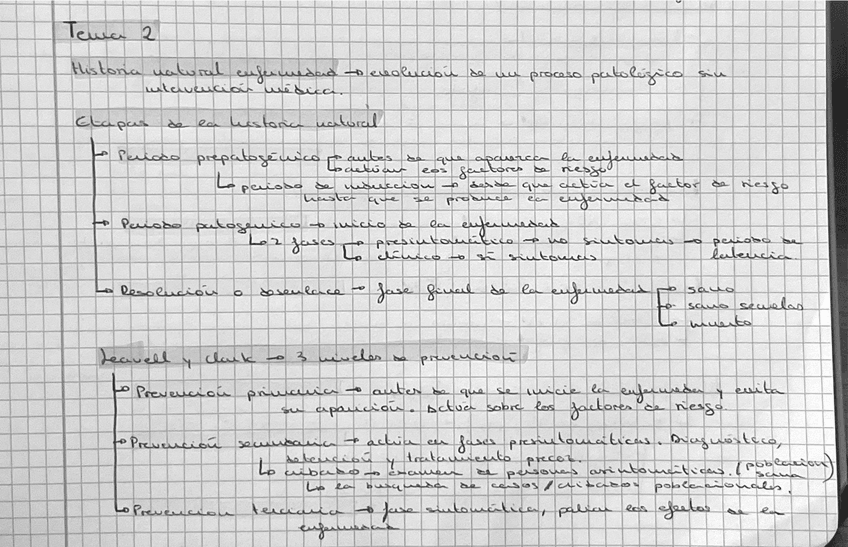 Tema 2
Historia natural enfermedad → evolución de un proceso patológico sin
intervención médica.
Etapas de la historia natural
Periodo prepatogénico → antes de que aparezca la enfermedad
→ actúan los factores de riesgo
→ periodo de inducción → desde que actúa el factor de riesgo
hasta que se produce la enfermedad
Periodo patogénico → inicio de la enfermedad
→ 2 fases → presintomático → no síntomas → periodo de
latencia
→ clínico → sí síntomas
Resolución o desenlace → fase final de la enfermedad → sano
→ sano secuelas
→ muerto
Leavell y Clark → 3 niveles de prevención
Prevención primaria → antes de que se inicie la enfermedad y evita
su aparición. Actúa sobre los factores de riesgo.
Prevención secundaria → actúa en fases presintomáticas. Diagnóstico,
detención y tratamiento precoz.
→ cribado → examen de personas asintomáticas. (población sana)
→ la búsqueda de casos / cribados poblacionales.
Prevención terciaria → fase sintomática, paliar los efectos de la
enfermedad